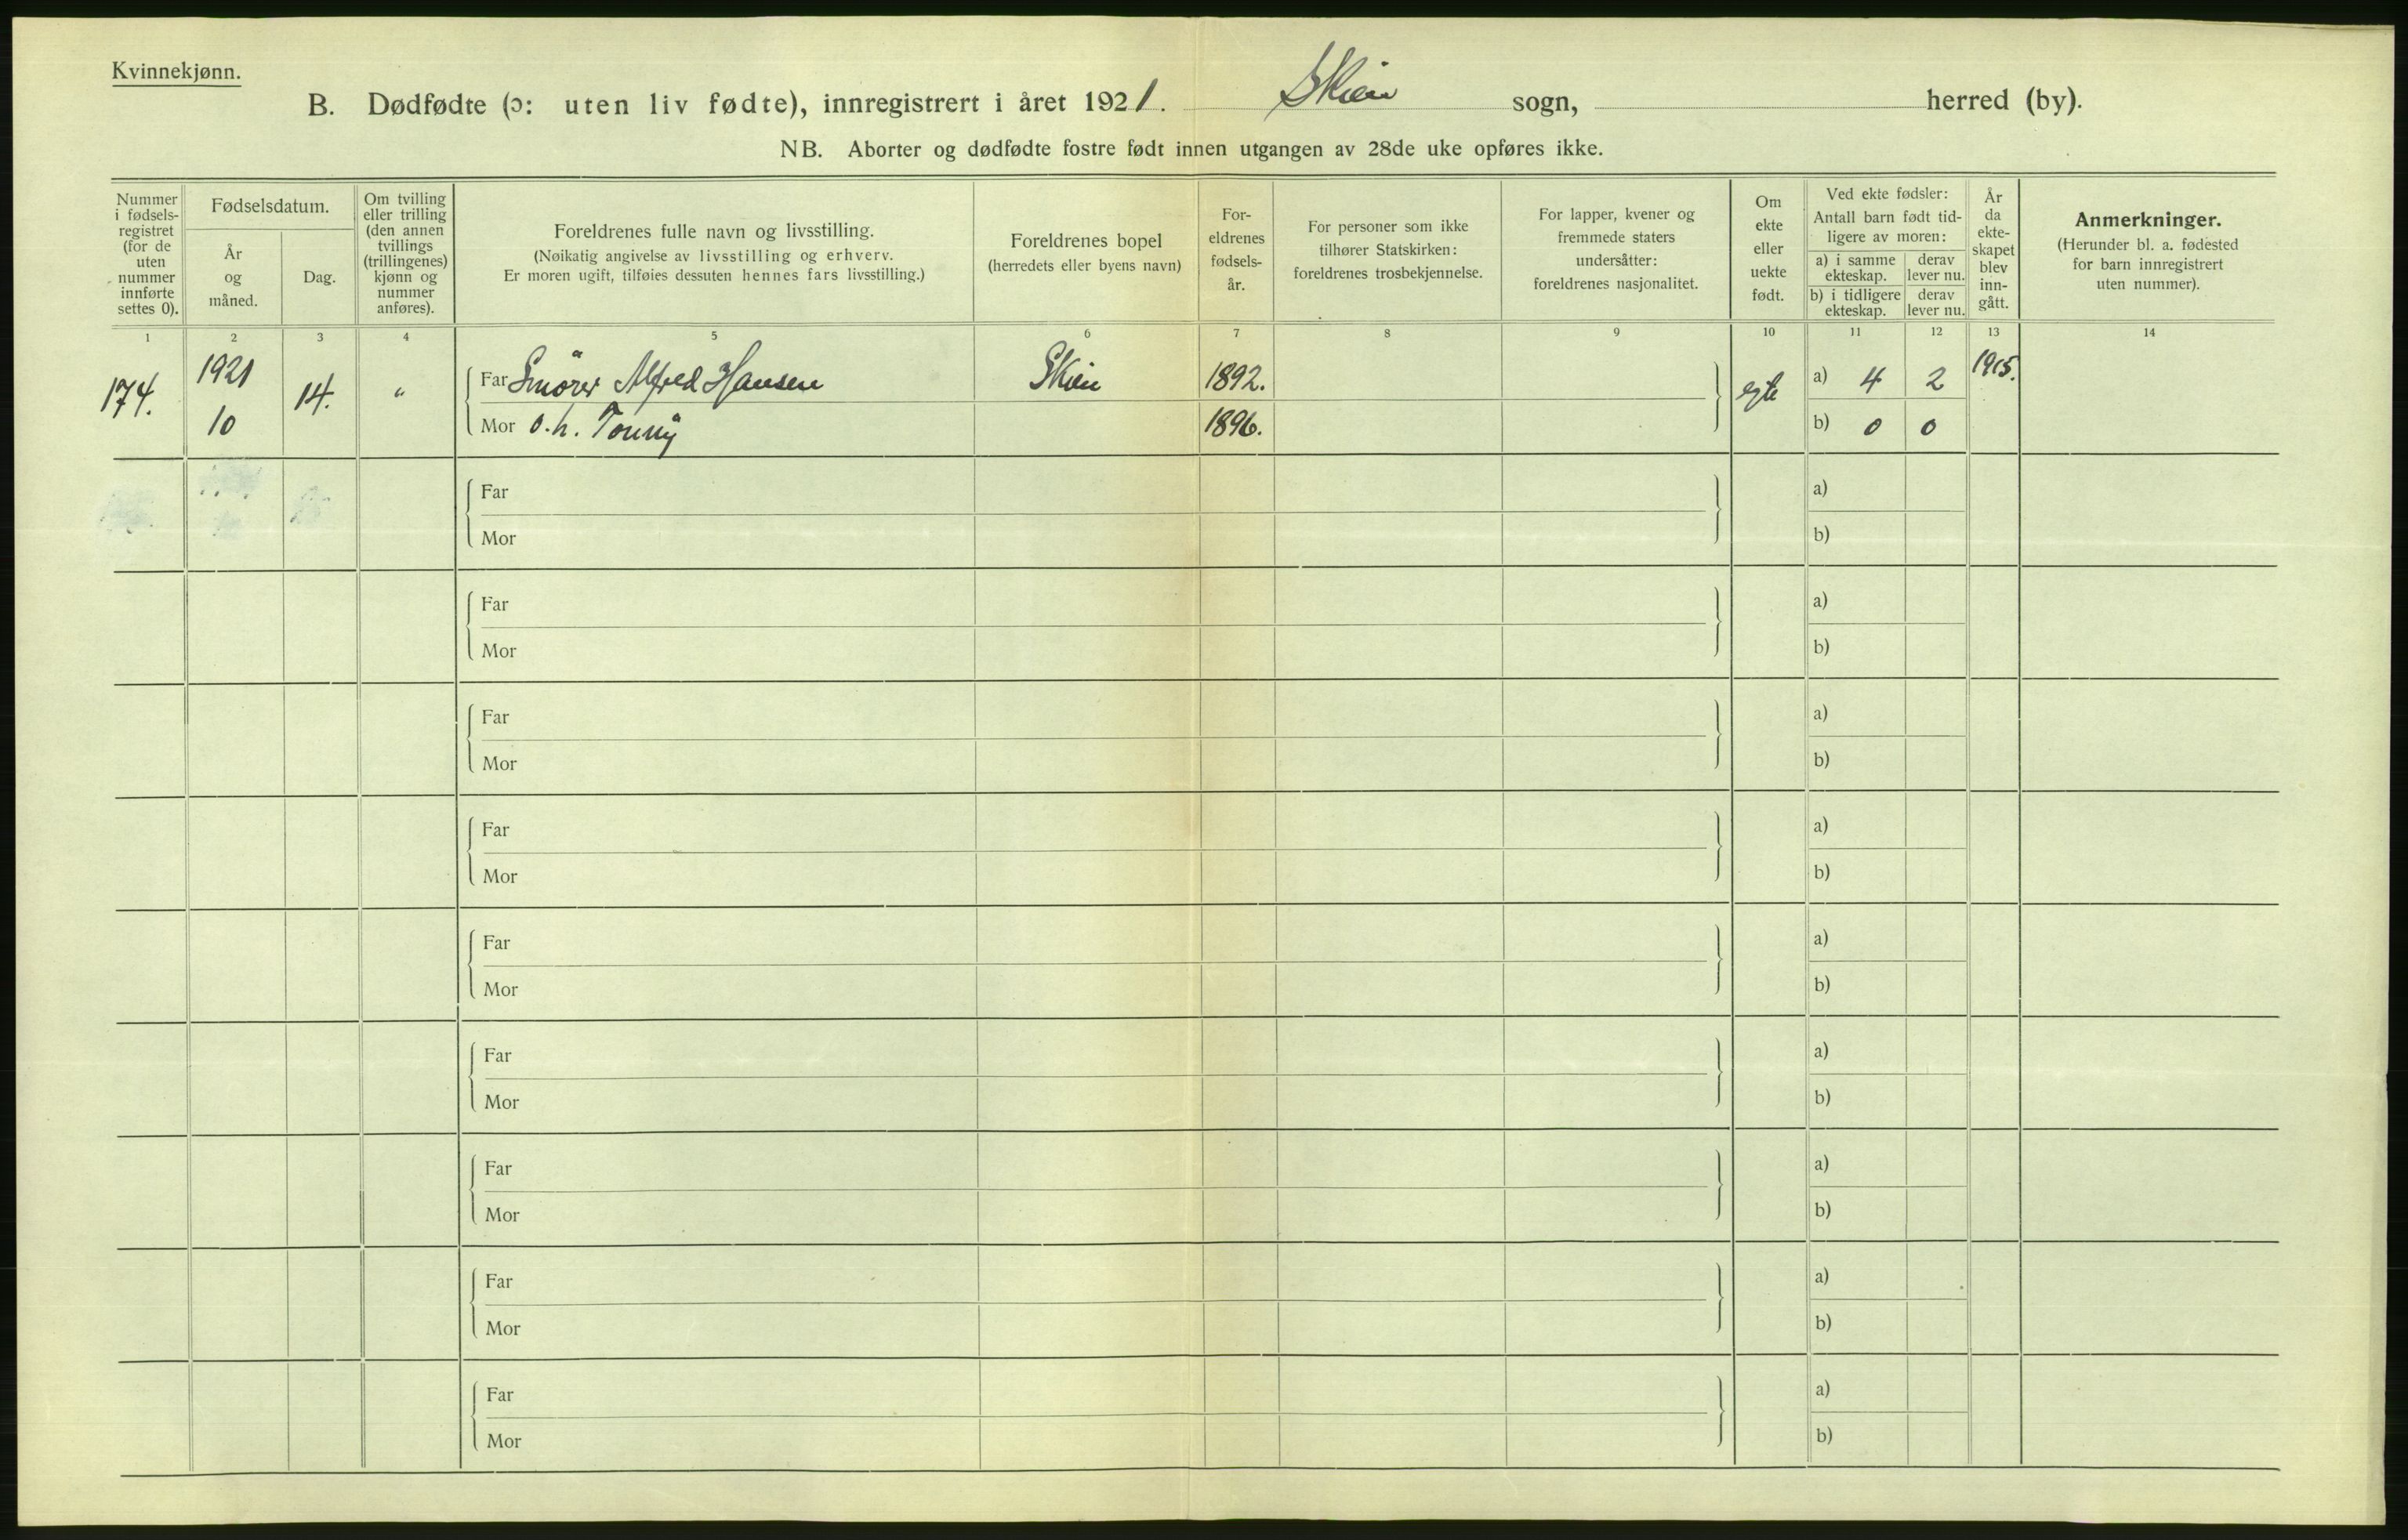 Kvinnekjønn.
B. Dødfødte (ɔ: uten liv fødte), innregistrert i året 1921. Skien sogn, herred (by).
NB. Aborter og dødfødte fostre født innen utgangen av 28de uke opføres ikke.
Nummer
i fødsels-
registret
(for de
uten
nummer
innførte
settes 0).
Fødselsdatum.
År
og
måned.
Dag.
Om tvilling
eller trilling
(den annen
tvillings
(trillingenes)
kjønn og
nummer
anføres).
Foreldrenes fulle navn og livsstilling.
(Nøikatig angivelse av livsstilling og erhverv.
Er moren ugift, tilføies dessuten hennes fars livsstilling.)
Foreldrenes bopel
(herredets eller byens navn)
For-
eldrenes
fødsels-
år.
For personer som ikke
tilhører Statskirken:
foreldrenes trosbekjennelse.
For lapper, kvener og
fremmede staters
undersåtter:
foreldrenes nasjonalitet.
Om
ekte
eller
uekte
født.
Ved ekte fødsler:
Antall barn født tid-
ligere av moren:
a) i samme
ekteskap.
derav
lever nu.
b) i tidligere
ekteskap.
derav
lever nu.
År
da
ekte-
skapet
blev
inn-
gått.
Anmerkninger.
(Herunder bl. a. fødested
for barn innregistrert
uten nummer).
1 2 3 4 5 6 7 8 9 10 11 12 13 14
174. 1921 10 14. "
Far Smörer Alfred Hansen Skien 1892. egte a) 4 2 1915.
Mor o.h. Tonny 1896. b) 0 0
Far a)
Mor b)
Far a)
Mor b)
Far a)
Mor b)
Far a)
Mor b)
Far a)
Mor b)
Far a)
Mor b)
Far a)
Mor b)
Far a)
Mor b)
Far a)
Mor b)